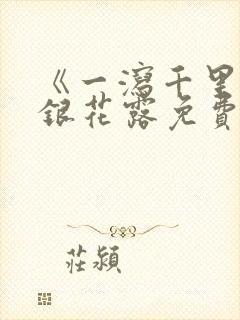 《一瀉千里
銀花露免費
莊潁